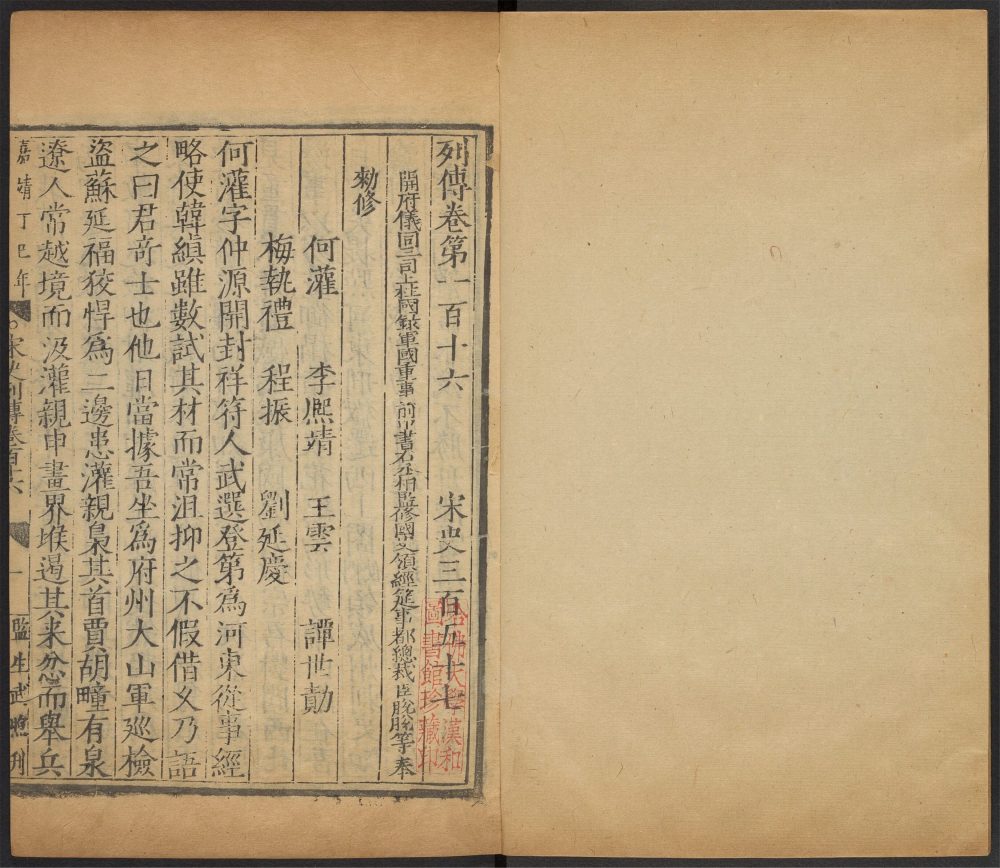 列傳卷第一百十六　宋史三百五十七
開府儀同三司上柱國錄軍國重事前中書右丞相監修國史領經筵事都總裁臣脫脫等奉
勑修
何灌　李熈靖　王雲　譚世勣
梅執禮　程振　劉延慶
何灌字仲源開封祥符人武選登第爲河東從事經
略使韓縝雖數試其材而常沮抑之不假借乆乃語
之曰君竒士也他日當據吾坐爲府州大山軍廵檢
盜蘇延福狡悍爲二邊患灌親梟其首賈胡疃有泉
遼人常越境而汲灌親申畫界堠遏其来忿而舉兵
嘉靖丁巳年　宋史列傳卷百十六　一　監生武煦刊
哈佛大學漢和
圖書館珍藏印